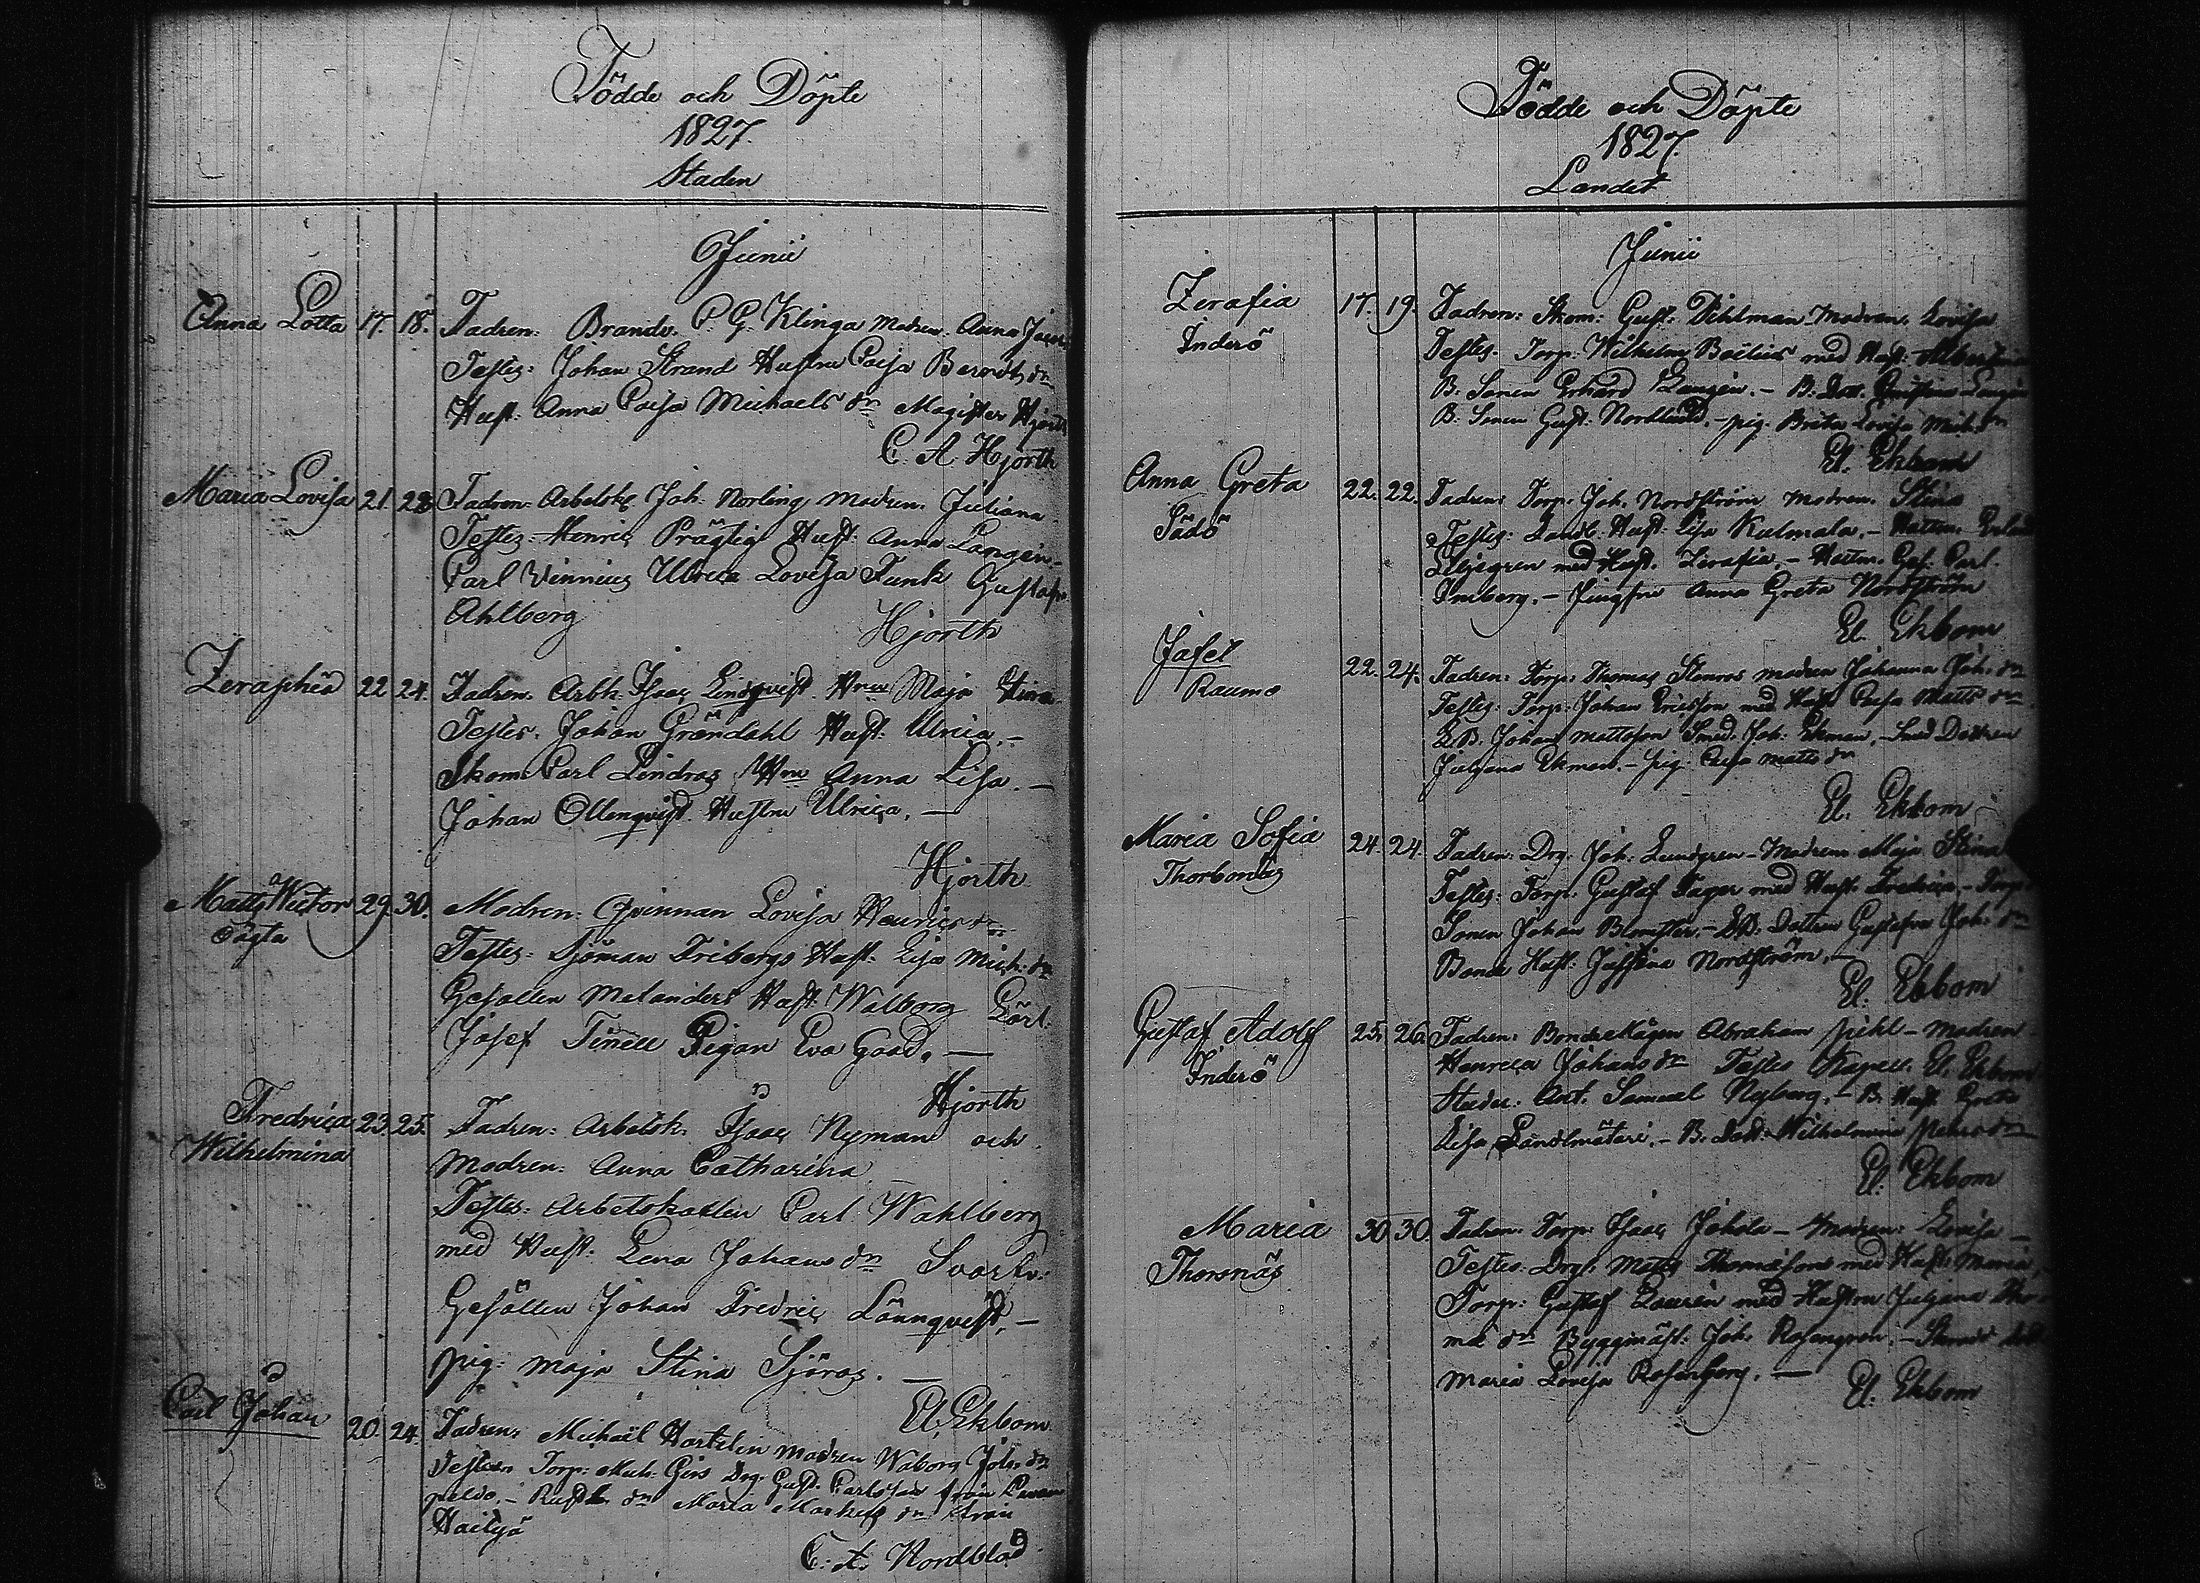 Födde och Döpte
1827.
Staden
Junii
Anna Lotta 17. 18. Fadren: Brandv. P. G. Klinga Modren. Anna
Testes: Johan Strand Hustru Caisa Berndts dr
Hust. Anna Caisa Michaels dr Magister Hjorth
C. A. Hjorth
Maria Lovisa 21. 23 Fadren: Arbetsk. Joh. Norling Modren. Juliana
Testes Henric Prägtig Hust. Anna Langen
Carl Vinnius Ulrica Lovisa Funk Gustafva
Ahlberg
Hjorth
Zeraphia 22 24. Fadren. Arbk. Isaac Lindqvist. Hru Maja Stina
Testes. Johan Gröndahl Hust. Ulrica. –
Skom. Carl Lindros Hru Anna Lisa. –
Johan Ollenqvist. Hustru Ulrica. –
Hjorth
Matts Victor 29. 30. Modren: Qvinnan Lovisa Henrics dr
Testes. Sjöman Fribergs Hust. Lisa Mich. dr
Gesällen Melanders Hust. Walborg
Josef Pigan Eva Good. –
Hjorth
Fredrica 23. 25. Fadren: Arbetsk. Isaac Nyman och
Wilhelmina
Modren: Anna Catharina
Testes: Arbetskarlen Carl Wahlberg
med Hust. Lena Johans dr Svarfv.
Gesällen Johan Fredric Lönnqvist. –
pig. Maja Stina Sjöros. –
El. Ekbom
Carl Johan 20. 24. Fadren: Michaël Hartelin modren Waborg Joh. dr
Testes Torp. Mich. Girs Drg. Gust. Carlsson från
Maria Markus dr från
C. A. Nordblad
Födde och Döpte
1827.
Landet
Junii
Zerafia 17. 19. Fadren: Skom: Gust. Dihlman Modren. Lovisa
Inderö
Testes. Torp. Wilhelm Boëlius med Hust.
B. Sonen Erhard Langén. – B: Dott.
B. Sonen Gust. Nordlund. – pig. Brita Lovisa Mich. dr
El. Ekbom
Anna Greta 22. 22. Fadren: Torp. Joh. Nordström modren. Stina
Sådö
Testes: Landb. Hust. Lisa Kulmala. –
Liljegren med Hust. Zerafia. – Gef. Carl
Friberg. – Jungfru Anna Greta Nordström
El. Ekbom
Josef 22. 24. Fadren: Torp. Thomas Stenros modren Johanna Joh. dr
Raumo
Testes. Torp. Johan Ericsson med Hust Caisa Matts dr
Johan Mattsson Smed. Joh. Ekman, – Smed Dottren
Juliana Ekman. – pig. Caisa Matts dr
El. Ekbom
Maria Sofia 24. 24. Fadren: Drg. Joh. Lundgren – Modren Maja Stina
Testes: Torp. Gustaf Fager med Hust. Fredrica –
Sonen Johan Blomster. – Dottren Gustafva Joh. dr
Bonde Hust. Justina Nordström. –
El. Ekbom
Gustaf Adolf 25. 26. Fadren: Bondekågen Abraham Pihl – modren
Inderö
Henrica Johans dr Testes Kapell. El. Ekbom
Studer. Ant. Samuel Nyberg. – B. Hust. Greta
Lisa Landtmäteri. – B. Dott. Wilhelmina Peters dr
El. Ekbom
Maria 30. 30. Fadren: Torp. Isaac Jokela – Modren: Lovisa –
Thorsnäs
Testes. Drg. Matts Thomasson med Hust. Maria,
Torp: Gustaf Laurén med Hustru Juliana Tho
mæ dr Byggmäst. Joh. Rosengren. –
Maria Lovisa Rosenberg. –
El. Ekbom